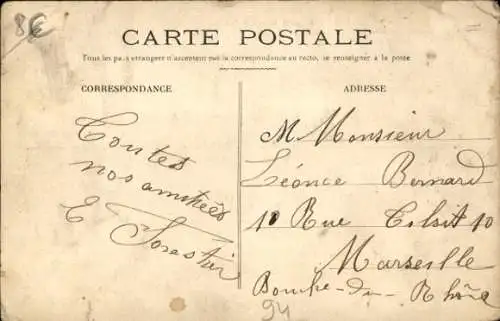 8€
CARTE POSTALE
Tous les pays etrangers n'acceptent pas la correspondance au recto, se renseigner à la poste
CORRESPONDANCE
ADRESSE
Toutes
nos amitiés
E Forestier
M Monsieur
Léonce Bernard
10 Rue Tilsit 10
Marseille
Bouche-du-Rhône
94